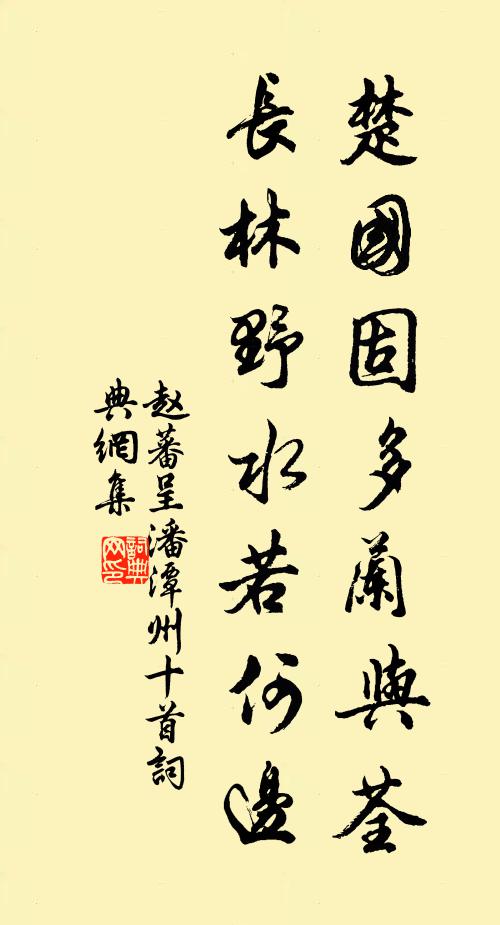 楚國固多蘭與荃
長林野水若何邊
赵蕃呈潘潭州十首詞
典網集
詞典网印